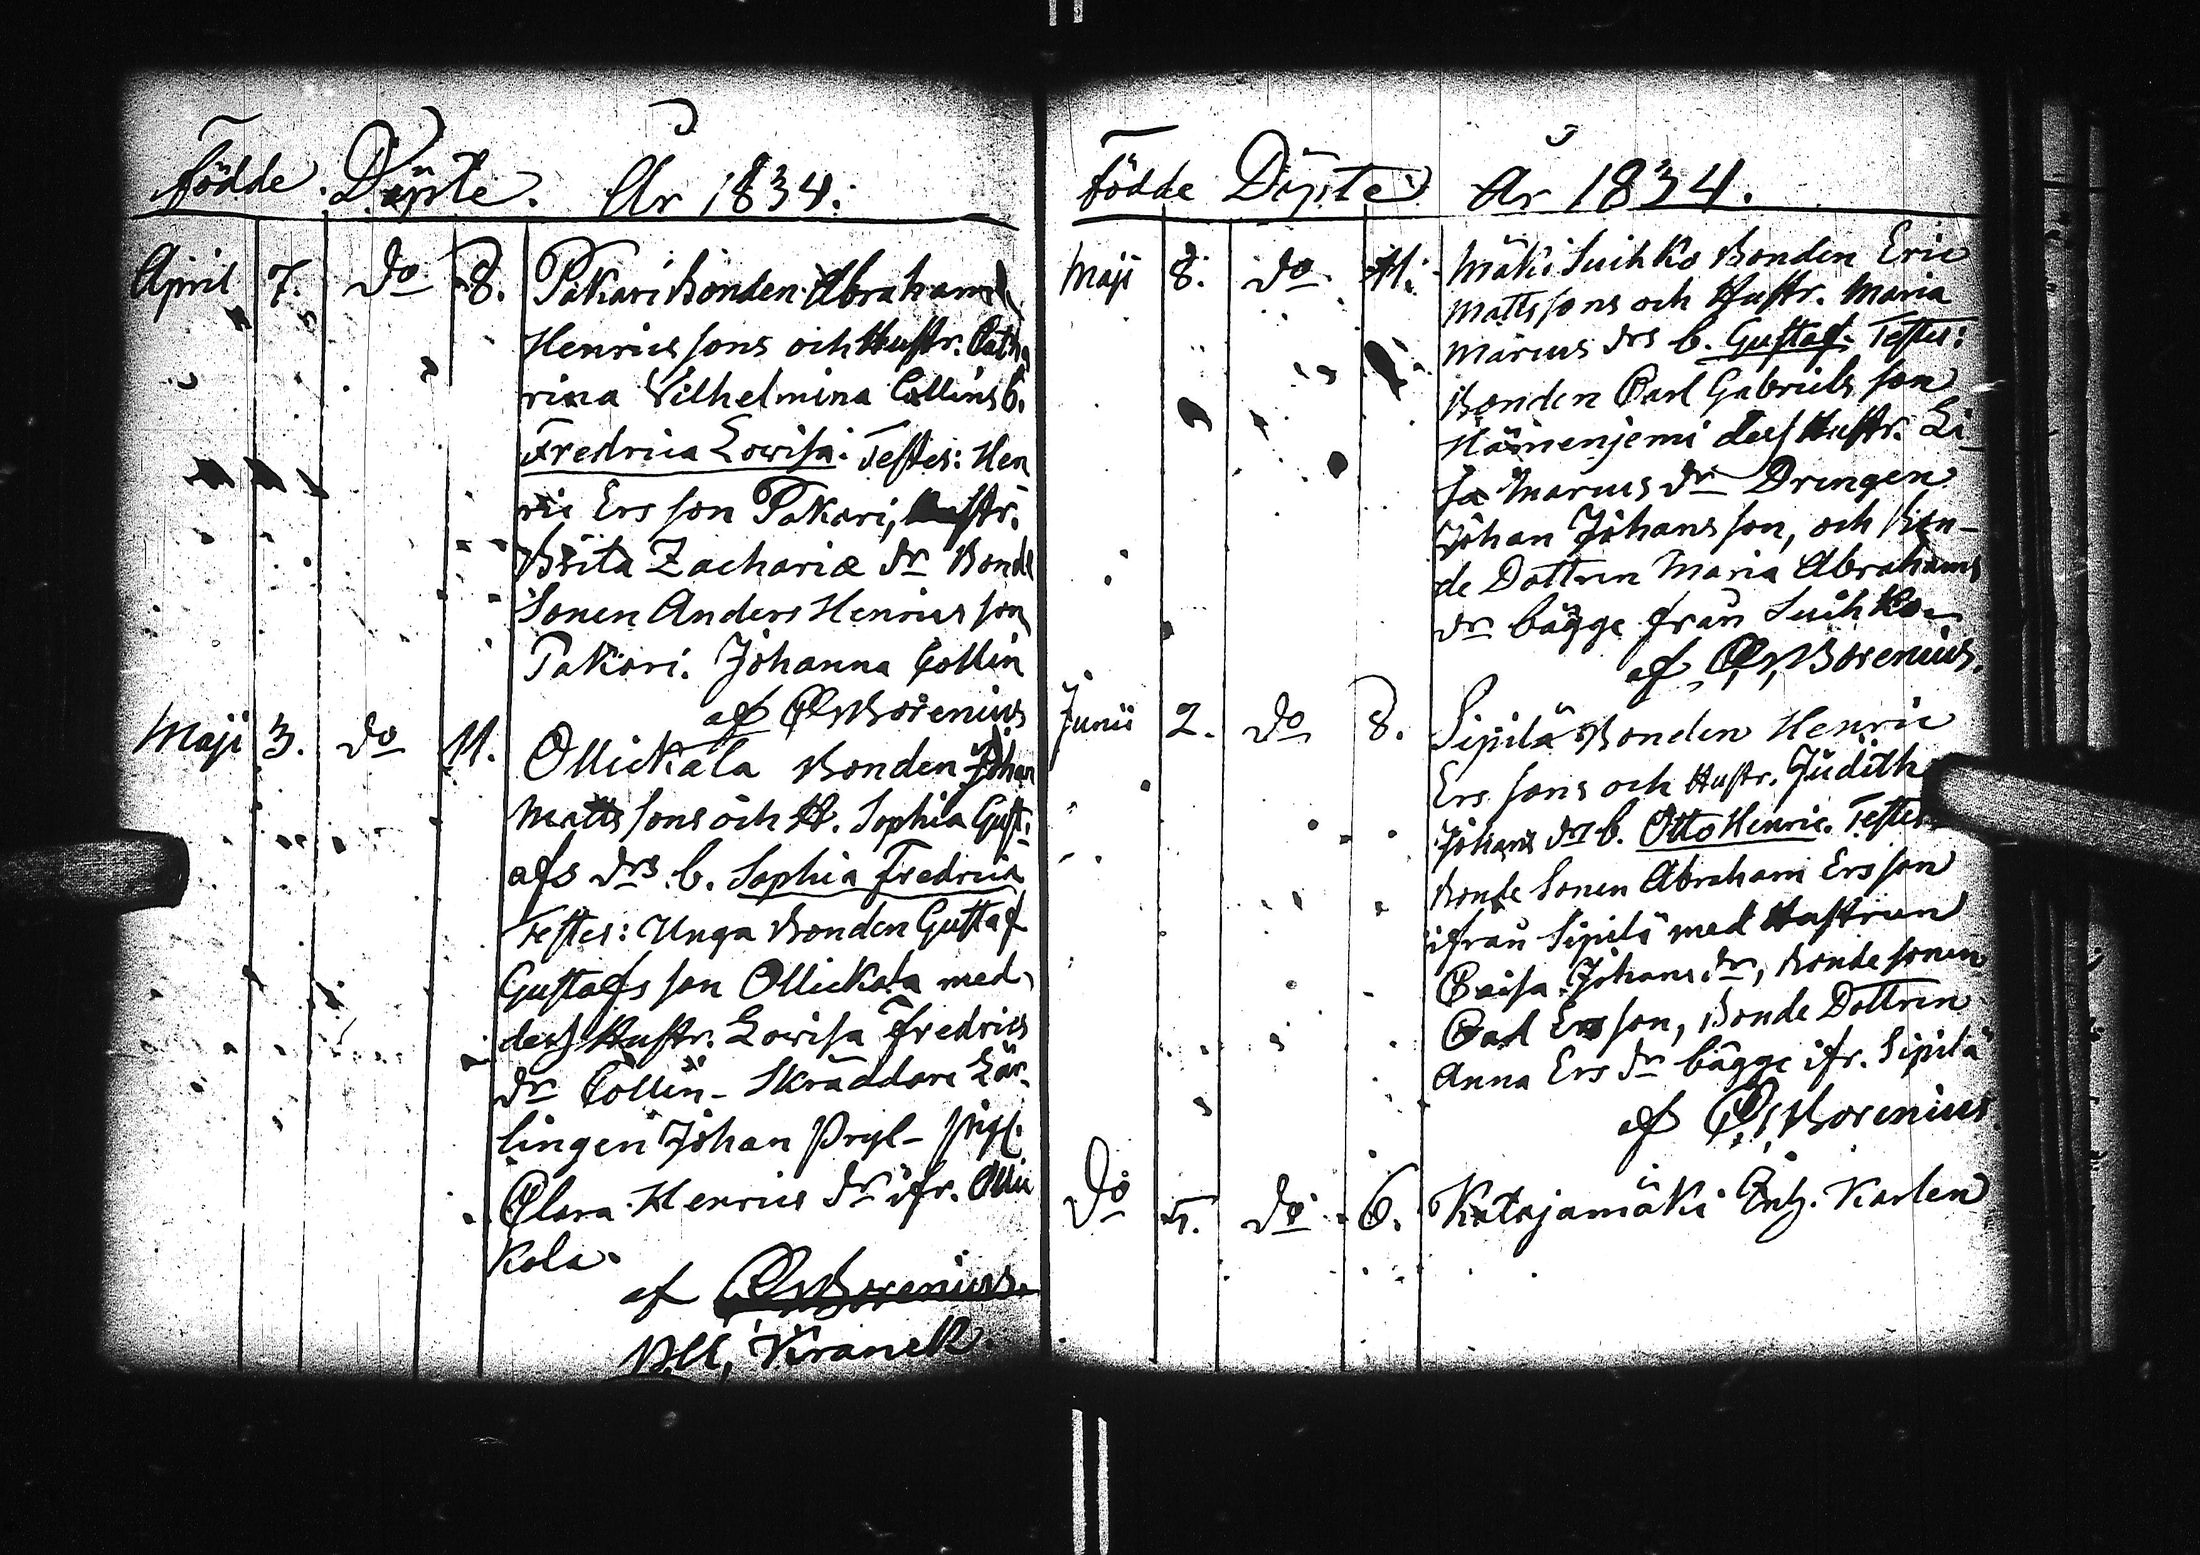 Födde. Döpte. År 1834.
April 7. do 8. Pakari Bonden Abraham
Henricssons och Hustr. Catha
rina Vilhelmina Collins b.
Fredrica Lovisa. Testes: Hen
ric Ersson Pakari, Hustr.
Brita Zachariæ dr Bonde
Sonen Anders Henricsson
Pakari. Johanna Collin
af C. Borenius
Maji 3. do 11. Ollickala Bonden Johan
Mattssons och H. Sophia Gust.
afs drs b. Sophia Fredrica
Testes: Unga Bonden Gustaf
Gustafsson Ollickala med
dess Hustr. Lovisa Fredrics
dr Collin - Skräddare Lär-
lingen Johan Pryl - pig.
Clara Henrics dr ifr. Olli
kala.
af C. Borenius.
Kranck.
Födde Döpte År 1834.
Maji 8. do 11. Mäki Suihko Bonden Eric
Mattssons och Hustr. Maria
Marcus drs b. Gustaf. Testes:
Bonden Carl Gabrielsson
Hämenjemi dess Hustr. Li-
sa Marcus dr Drengen
Johan Johansson, och Bon-
de Dottren Maria Abrahams
dr bägge från Suihko.
af C. Borenius.
Junii 2. do 8. Sipilä Bonden Henric
Erssons och Hustr. Judith
Johans drs b. Otto Henric. Testes
Bonde Sonen Abraham Ersson
ifrån Sipilä med Hustrun
Caisa Johans dr, Bonde sonen
Carl Ersson, Bonde Dottren
Anna Ers dr bägge ifr. Sipilä
af C. Borenius.
Do 5. do 6. Katajamäki Enk. Karlen